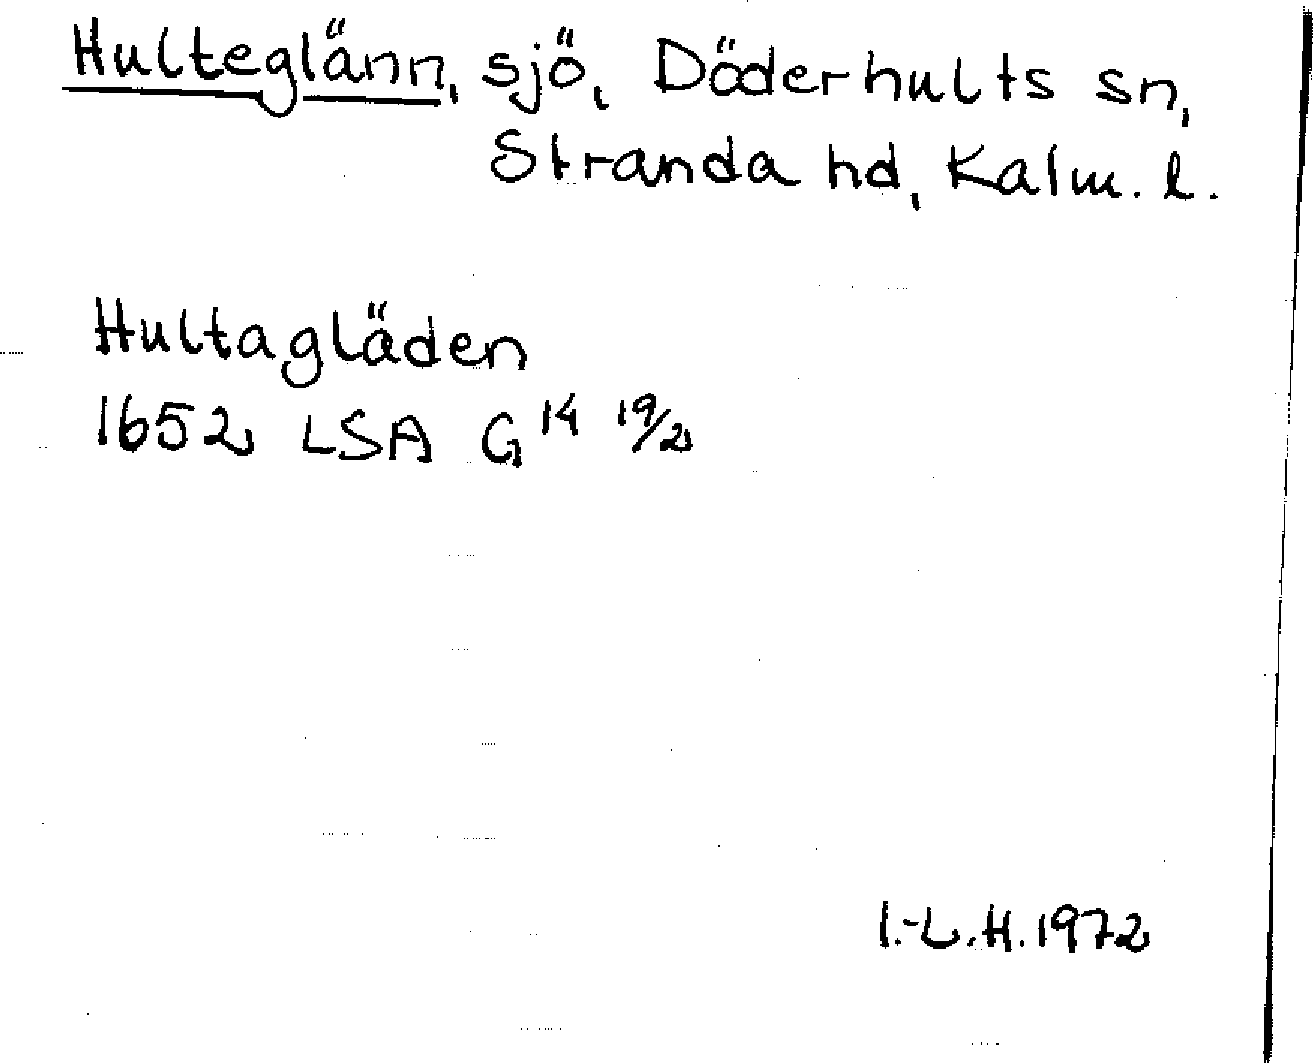 Hulteglänn, sjö, Döderhults sn,
Stranda hd, Kalm. l.
Hultagläden
1652 LSA G 14 19/2
I.-L.H. 1972